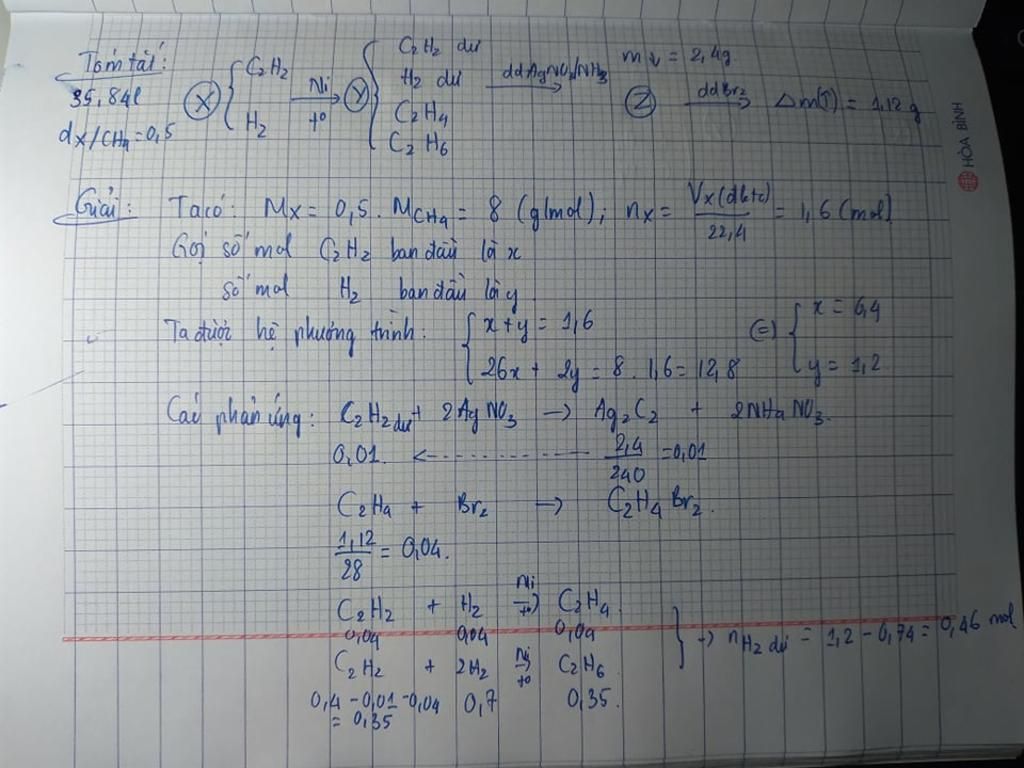 Tóm tắt:
35,84l
dX/CH4 = 0,5
X { C2H2
H2
Ni
t°
Y { C2H2 dư
H2 dư
C2H4
C2H6
ddAgNO3/NH3
m↓ = 2,4g
Z ddBr2 → Δm(↑) = 1,12g
HÒA BÌNH
Giải: Ta có: MX = 0,5 . MCH4 = 8 (g/mol); nX = VX(đktc)/22,4 = 1,6 (mol)
Gọi số mol C2H2 ban đầu là x
số mol H2 ban đầu là y
Ta được hệ phương trình: { x + y = 1,6
26x + 2y = 8 . 1,6 = 12,8
(=) { x = 0,4
y = 1,2
Các phản ứng: C2H2 dư + 2AgNO3 → Ag2C2 + 2NH4NO3.
0,01 <-------- 2,4/240 = 0,01
C2H4 + Br2 → C2H4Br2.
1,12/28 = 0,04.
C2H2 + H2 Ni t° → C2H4
0,04 0,04 0,04
C2H2 + 2H2 Ni t° → C2H6
0,4 - 0,01 - 0,04 0,7 0,35.
= 0,35
} → nH2 dư = 1,2 - 0,74 = 0,46 mol